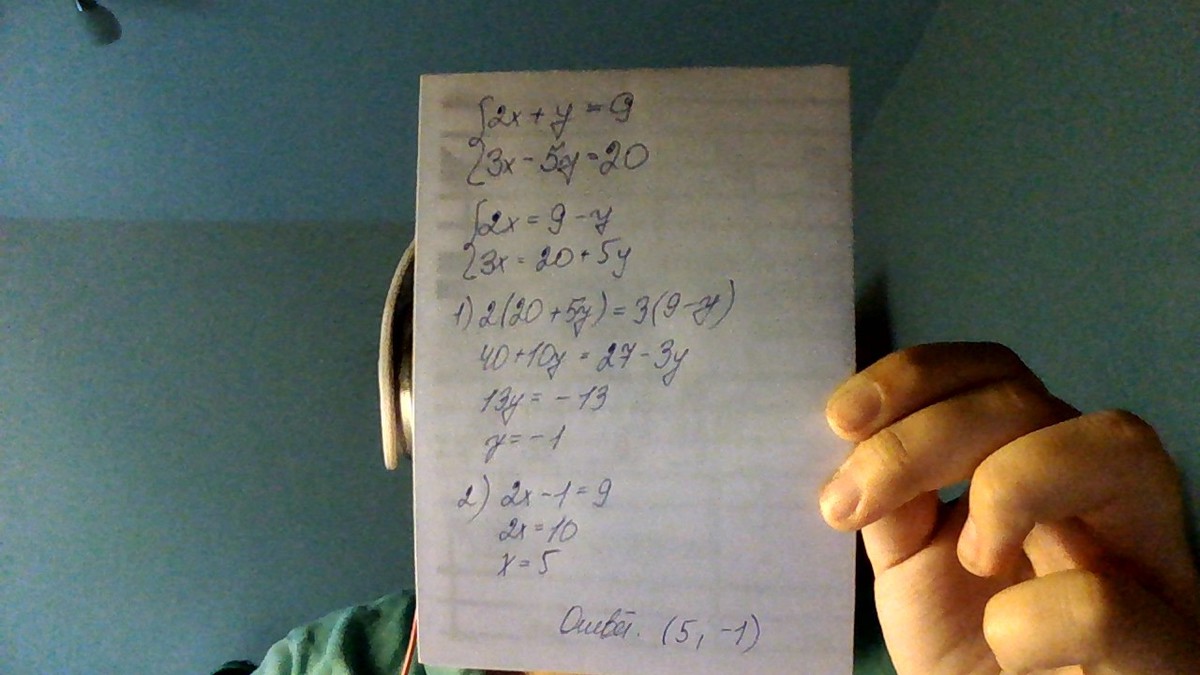 {2x + y = 9
{3x - 5y = 20
{2x = 9 - y
{3x = 20 + 5y
1) 2(20 + 5y) = 3(9 - y)
40 + 10y = 27 - 3y
13y = -13
y = -1
2) 2x - 1 = 9
2x = 10
x = 5
Ответ. (5, -1)